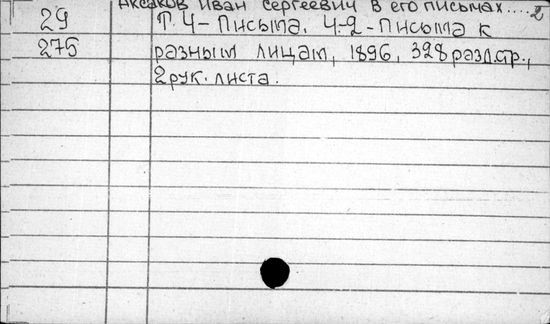 Аксаков Иван Сергеевич в его письмах....2
29 Т.4-Письма. Ч-2-Письма к
275 разным лицам, 1896, 328 разд.стр.,
2 рук. листа.